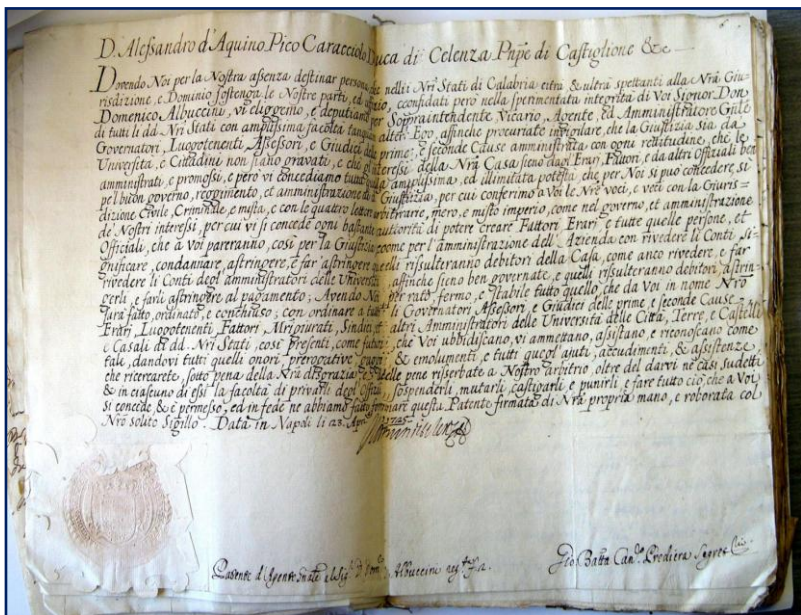 D. Alessandro d'Aquino Pico Caracciolo Duca di Celenza Pnpe di Castiglione &c
Dovendo Noi per la Nostra assenza destinar persona, che nelli Nri Stati di Calabria citra & ultra spettanti alla Nra Giu-
risdizione, e Dominio sostenga le Nostre parti, ed officio, confidati però nella sperimentata integrità di Voi Signor Don
Domenico Albuccini, vi eliggemo, e deputiamo per Sopraintendente, Vicario, Agente, ed Amministratore Gnle
di tutti li dd. Nri Stati con amplissima facoltà tanquam alter Ego, affinche procuriate invigilare, che la Giustizia sia da
Governatori, Luogotenenti, Assessori, e Giudici delle prime, e seconde Cause amministrata con ogni rettitudine, che le
Università, e Cittadini non siano gravati, e che gl'interessi della Nra Casa sieno dagl'Erarj, Fattori, e da altri Offiziali ben
amministrati, e promossi, e però vi concediamo tutta quella amplissima, ed illimitata potestà, che per Noi si può concedere, sì
pe'l buon governo, reggimento, et amministrazione della Giustizia, per cui conferimo à Voi le Nre voci, e veci con la Giuris=
dizione Civile, Criminale, e mista, e con le quattro lettere arbitrarie, mero, e misto imperio, come nel governo, et amministrazione
de' Nostri interessi, per cui vi si concede ogni bastante auttorità di potere creare Fattori, Erarj, e tutte quelle persone, et
Officiali, che à voi pareranno, così per la Giustizia, come per l'amministrazione dell'Azienda con rivedere li Conti, si-
gnificare, condannare, astringere, e far astringere quelli risulteranno debitori della Casa, come anco rivedere, e far
rivedere li Conti degl'amministratori delle Università, affinche sieno ben governate, e quelli risulteranno debitori, astrin-
gerli, e farli astringere al pagamento; Avendo Noi per rato, fermo, e stabile tutto quello, che da Voi in nome Nro
sarà fatto, ordinato, e conchiuso; con ordinare a tutti li Governatori, Assessori, e Giudici delle prime, e seconde Cause,
Erarj, Luogotenenti, Fattori, Mrigiurati, Sindici, et altri Amministratori delle Università delle Città, Terre, e Castelli
e Casali di dd. Nri Stati, così presenti, come futuri, che Voi ubbidiscano, vi ammettano, assistano, e riconoscano come
tali, dandovi tutti quelli onori, prerogative, & emolumenti, e tutti quegl'ajuti, accudimenti, & assistenze,
che ricercarete, sotto pena della Nra disgrazia, e delle pene riserbate a Nostro arbitrio, oltre del darvi ne' casi sudetti
& in ciascuno di essi la facoltà di privarli degl'Offizj, sospenderli, mutarli, castigarli, e punirli, e fare tutto ciò, che a Voi
si concede, & è permesso, ed in fede ne abbiamo fatto formare questa Patente firmata di Nra propria mano, e roborata col
Nro solito Sigillo. Data in Napoli li 28. Aprile 1725
Patente d'Agente gnale al Sig. D. Dom.co Albuccini
Gio Batta Can.co Prediera Segret.rio